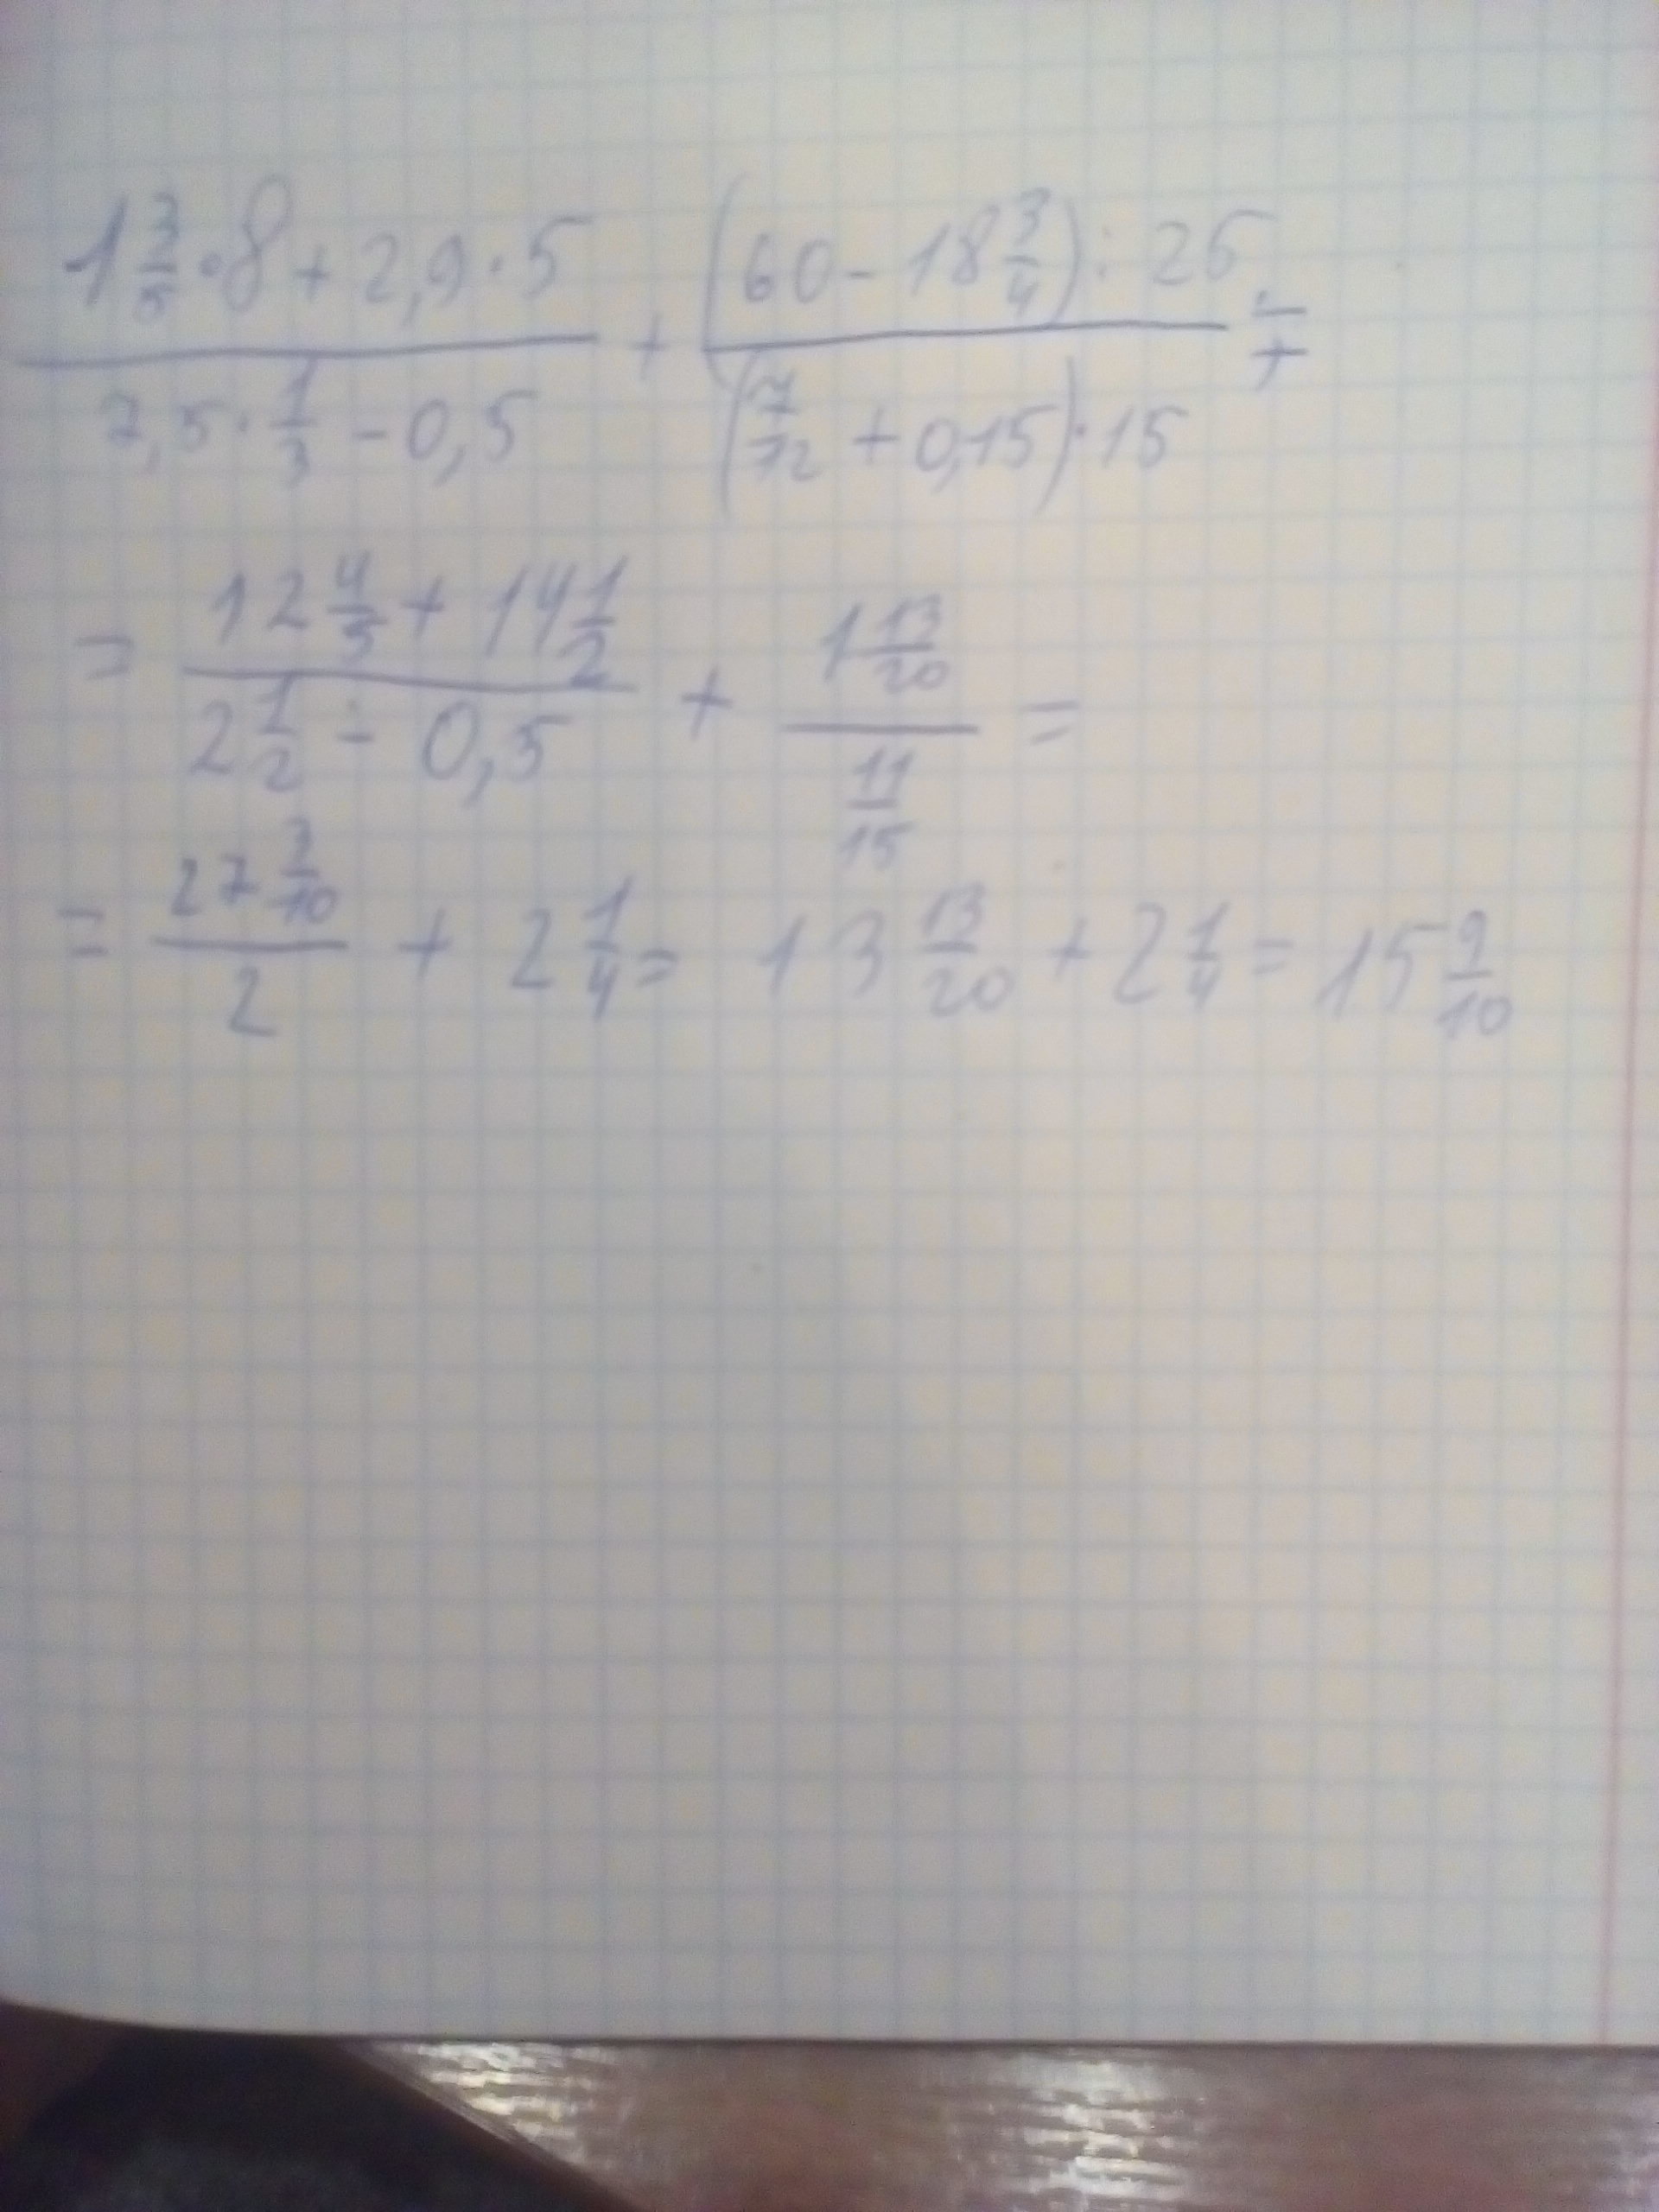 (1 3/5 · 8 + 2,9 · 5)/(7,5 · 1/3 - 0,5) + ((60 - 18 3/4) : 25)/((7/12 + 0,15) · 15) =
= (12 4/5 + 14 1/2)/(2 1/2 - 0,5) + (1 13/20)/(11/15) =
= (27 3/10)/2 + 2 1/4 = 13 13/20 + 2 1/4 = 15 9/10